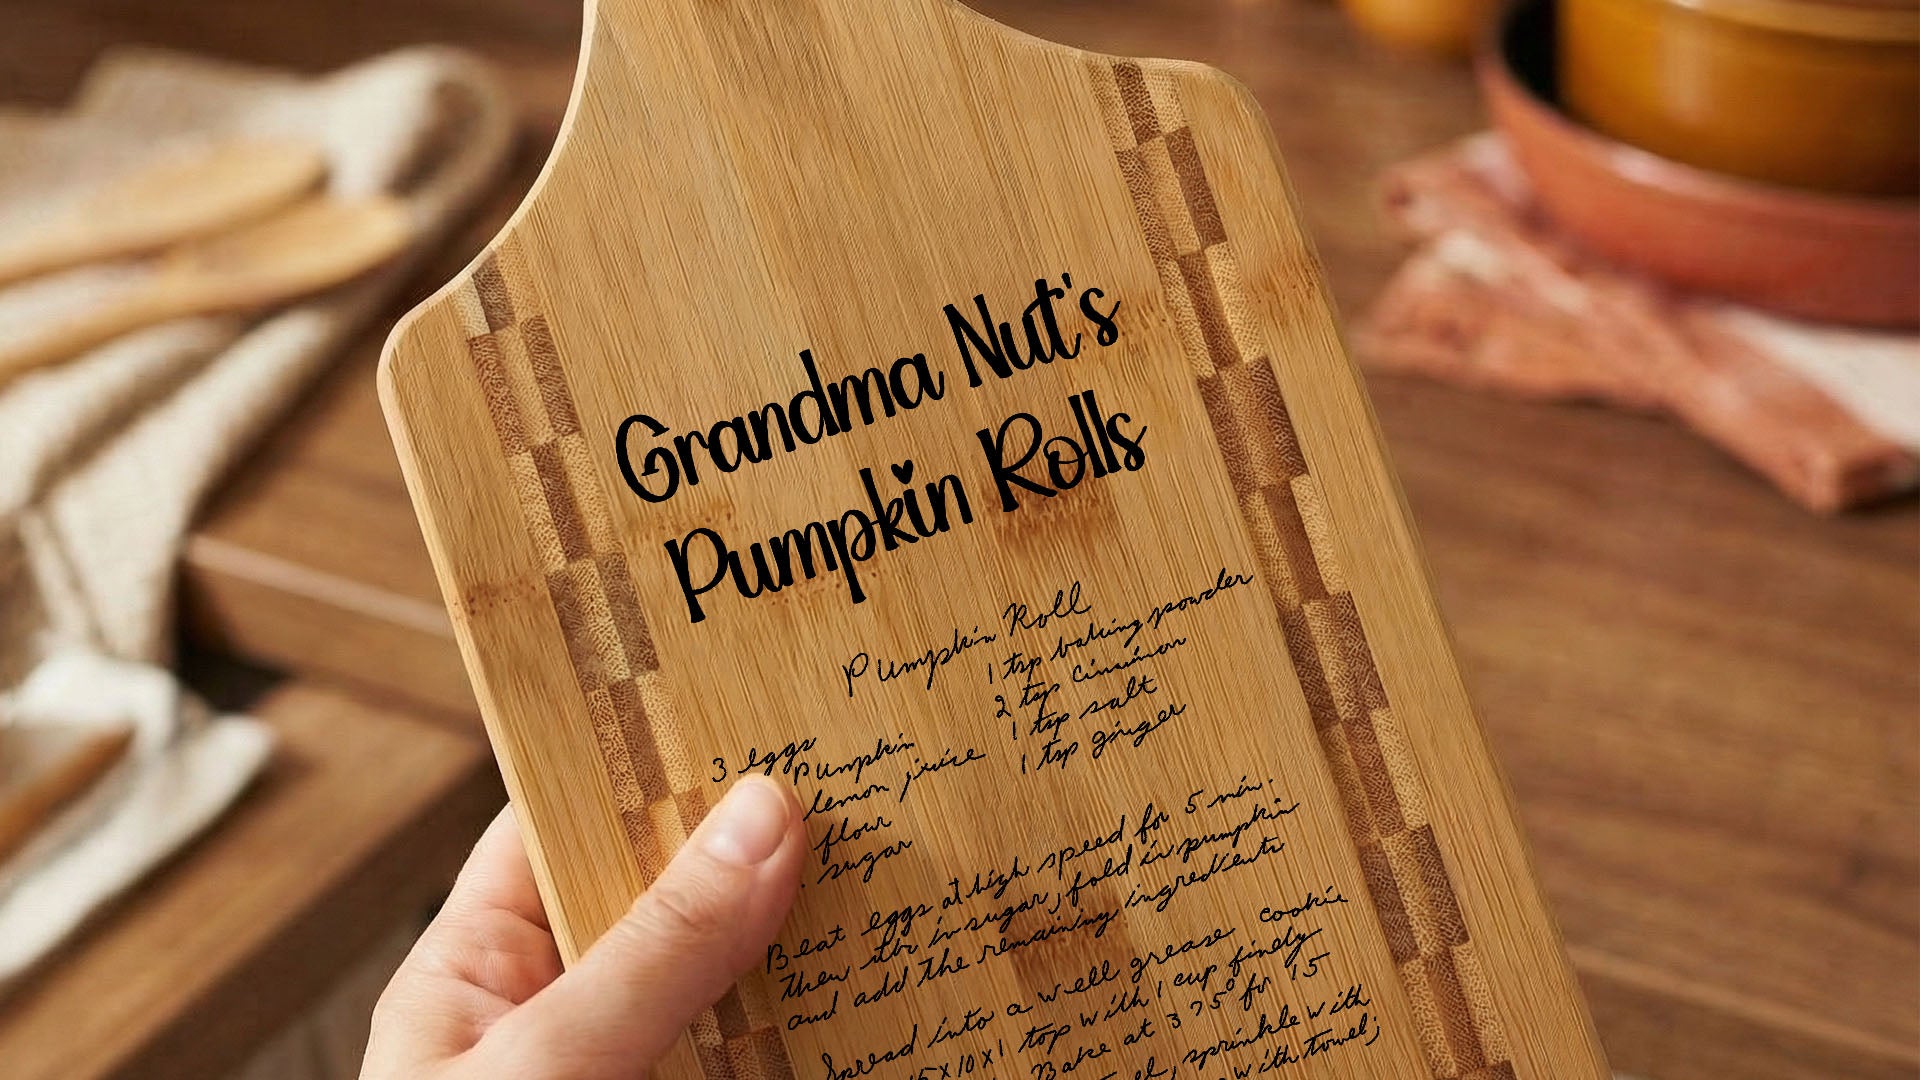 Grandma Nut's
Pumpkin Rolls
Pumpkin Roll
1 tsp baking powder
2 tsp cinnimon
1 tsp salt
1 tsp ginger
3 eggs
Pumpkin
lemon juice
flour
sugar
Beat eggs at high speed for 5 min.
then stir in sugar, fold in pumpkin
and add the remaining ingredients
Spread into a well grease cookie
15 x 10 x 1 top with 1 cup finely
Bake at 375° for 15
sprinkle with
with towel;